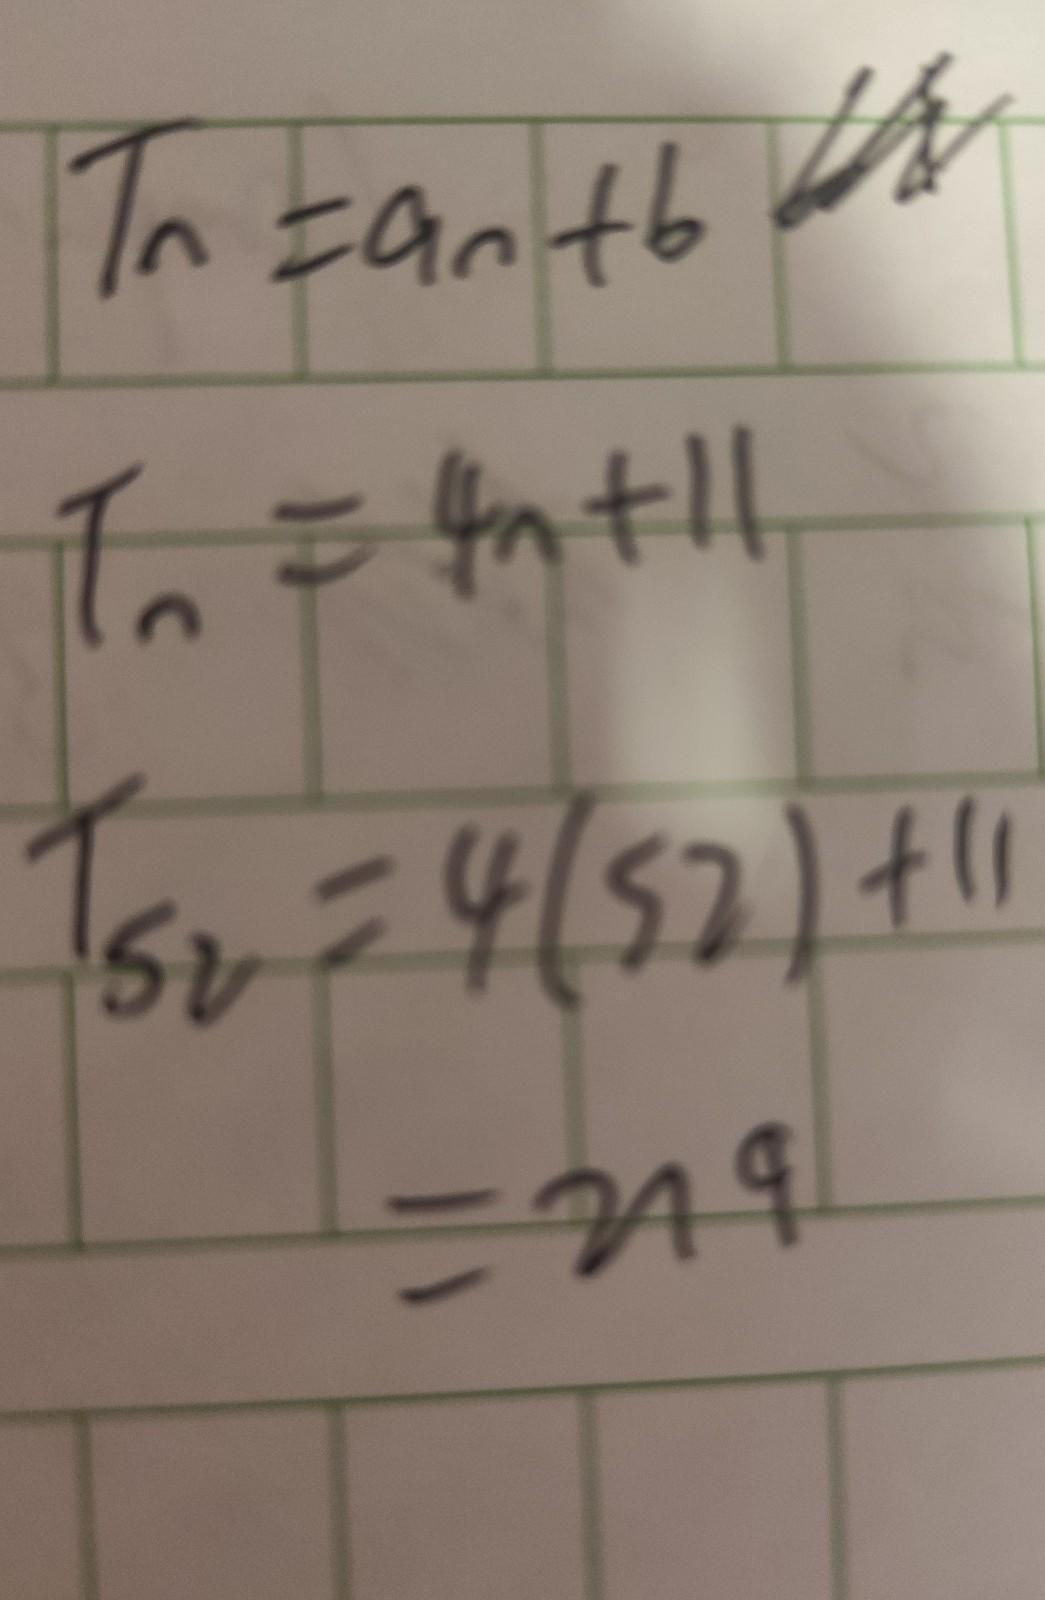 Tn = an + b
Tn = 4n + 11
T52 = 4(52) + 11
= 219